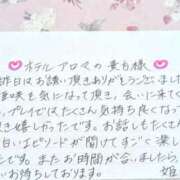 ホテルアロマの貴白様
昨日はお誘い頂きありがとうござい
咲を気になって頂き、会いに来て
プレイではたくさん気持ち良くなっ
き嬉しかったです。お話もたくさん
白いエピソードが聞けてすごく楽
です またお時間が合いましたら、
お待ちしております。 姫